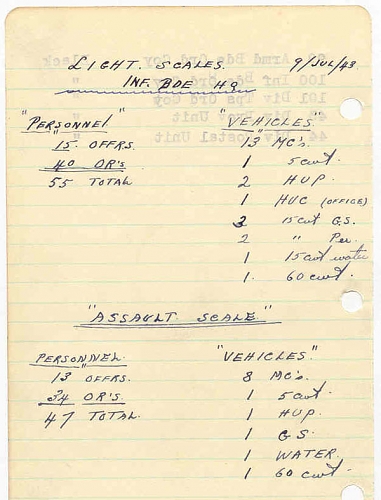 LIGHT. SCALES. 9/JUL/43
INF. BDE HQ
"PERSONNEL" "VEHICLES"
15 OFFRS. 13 MC's.
40 OR's 1 5cwt.
55 TOTAL 2 HUP.
1 HUC (OFFICE)
3 15cwt G.S.
2 " Per.
1 15cwt water
1. 60 cwt.
"ASSAULT SCALE"
PERSONNEL. "VEHICLES"
13 OFFRS. 8 MC's.
34 OR's. 1 5cwt
47 TOTAL. 1 HUP.
1 G.S.
1 WATER.
1 60 cwt.